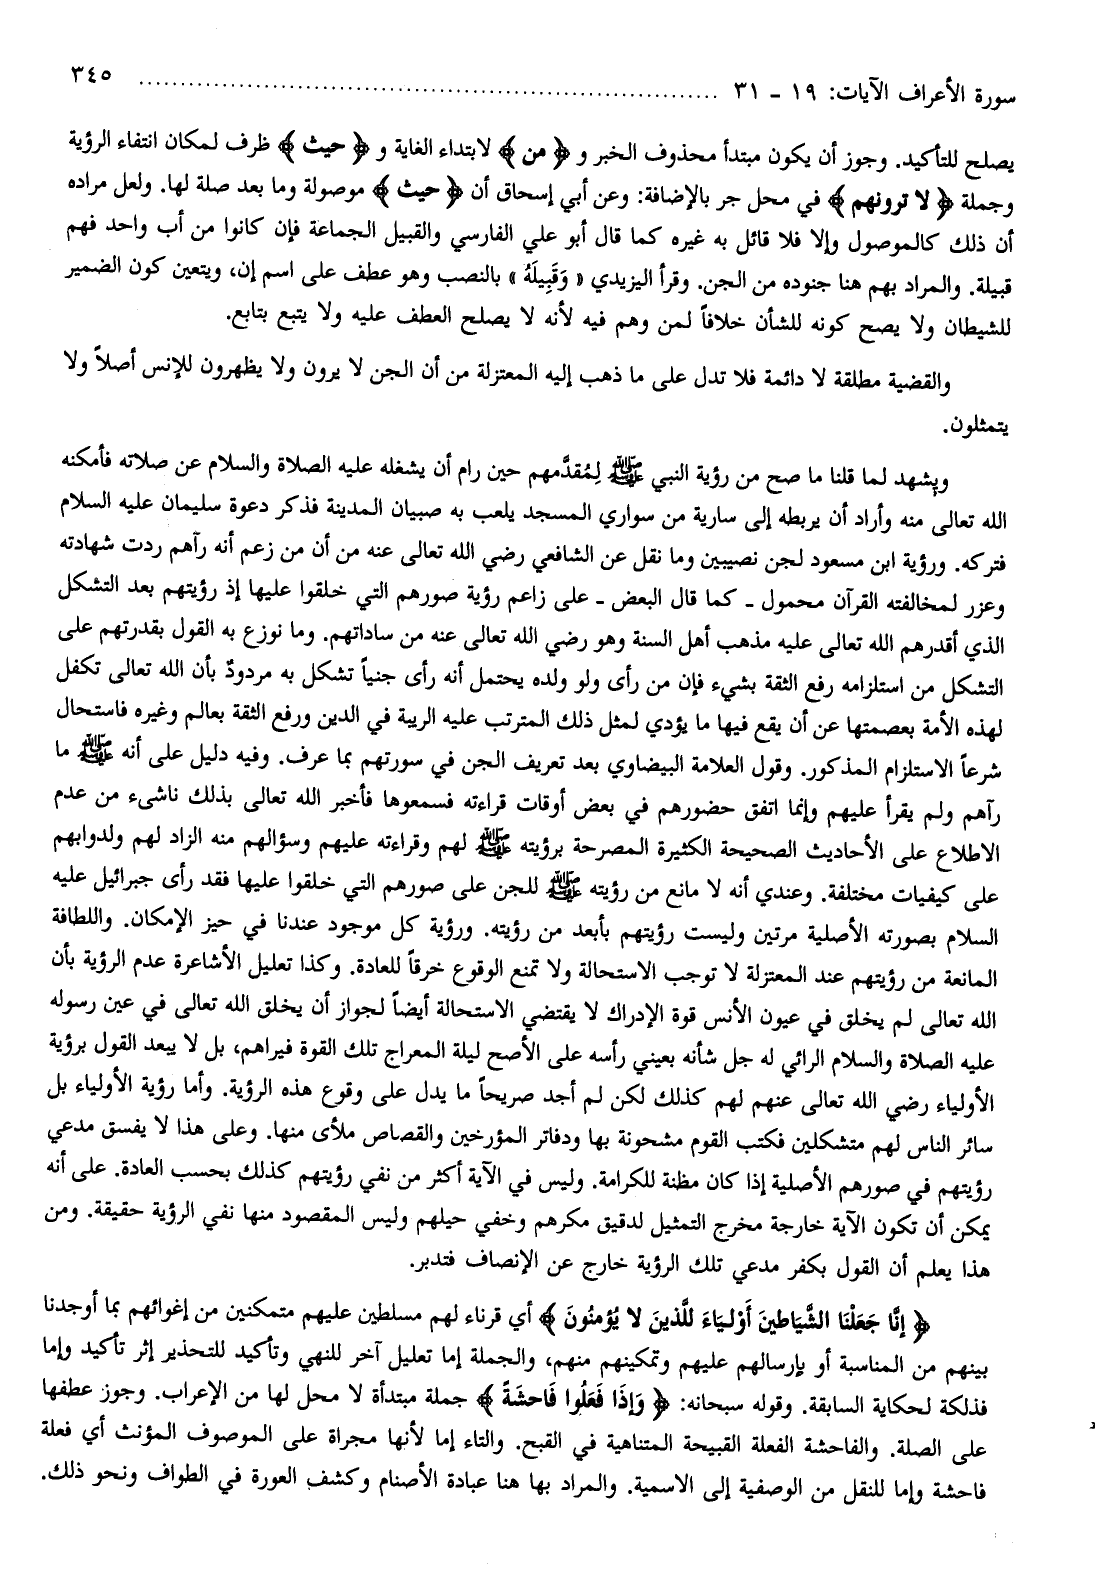 سورة الأعراف الآيات: ١٩ ـ ٣١ ........................................ ٣٤٥
يصلح للتأكيد. وجوز أن يكون مبتدأ محذوف الخبر و ﴿من﴾ لابتداء الغاية و ﴿حيث﴾ ظرف لمكان انتفاء الرؤية
وجملة ﴿لا ترونهم﴾ في محل جر بالإضافة: وعن أبي إسحاق أن ﴿حيث﴾ موصولة وما بعد صلة لها. ولعل مراده
أن ذلك كالموصول وإلا فلا قائل به غيره كما قال أبو علي الفارسي والقبيل الجماعة فإن كانوا من أب واحد فهم
قبيلة. والمراد بهم هنا جنوده من الجن. وقرأ اليزيدي «وَقَبِيلَهُ» بالنصب وهو عطف على اسم إن، ويتعين كون الضمير
للشيطان ولا يصح كونه للشأن خلافاً لمن وهم فيه لأنه لا يصلح العطف عليه ولا يتبع بتابع.
والقضية مطلقة لا دائمة فلا تدل على ما ذهب إليه المعتزلة من أن الجن لا يرون ولا يظهرون للإنس أصلاً ولا
يتمثلون.
ويشهد لما قلنا ما صح من رؤية النبي ﷺ لِمُقدَّمهم حين رام أن يشغله عليه الصلاة والسلام عن صلاته فأمكنه
الله تعالى منه وأراد أن يربطه إلى سارية من سواري المسجد يلعب به صبيان المدينة فذكر دعوة سليمان عليه السلام
فتركه. ورؤية ابن مسعود لجن نصيبين وما نقل عن الشافعي رضي الله تعالى عنه من أن من زعم أنه رآهم ردت شهادته
وعزر لمخالفته القرآن محمول ـ كما قال البعض ـ على زاعم رؤية صورهم التي خلقوا عليها إذ رؤيتهم بعد التشكل
الذي أقدرهم الله تعالى عليه مذهب أهل السنة وهو رضي الله تعالى عنه من ساداتهم. وما نوزع به القول بقدرتهم على
التشكل من استلزامه رفع الثقة بشيء فإن من رأى ولو ولده يحتمل أنه رأى جنياً تشكل به مردودٌ بأن الله تعالى تكفل
لهذه الأمة بعصمتها عن أن يقع فيها ما يؤدي لمثل ذلك المترتب عليه الريبة في الدين ورفع الثقة بعالم وغيره فاستحال
شرعاً الاستلزام المذكور. وقول العلامة البيضاوي بعد تعريف الجن في سورتهم بما عرف. وفيه دليل على أنه ﷺ ما
رآهم ولم يقرأ عليهم وإنما اتفق حضورهم في بعض أوقات قراءته فسمعوها فأخبر الله تعالى بذلك ناشىء من عدم
الاطلاع على الأحاديث الصحيحة الكثيرة المصرحة برؤيته ﷺ لهم وقراءته عليهم وسؤالهم منه الزاد لهم ولدوابهم
على كيفيات مختلفة. وعندي أنه لا مانع من رؤيته ﷺ للجن على صورهم التي خلقوا عليها فقد رأى جبرائيل عليه
السلام بصورته الأصلية مرتين وليست رؤيتهم بأبعد من رؤيته. ورؤية كل موجود عندنا في حيز الإمكان. واللطافة
المانعة من رؤيتهم عند المعتزلة لا توجب الاستحالة ولا تمنع الوقوع خرقاً للعادة. وكذا تعليل الأشاعرة عدم الرؤية بأن
الله تعالى لم يخلق في عيون الأنس قوة الإدراك لا يقتضي الاستحالة أيضاً لجواز أن يخلق الله تعالى في عين رسوله
عليه الصلاة والسلام الرائي له جل شأنه بعيني رأسه على الأصح ليلة المعراج تلك القوة فيراهم، بل لا يبعد القول برؤية
الأولياء رضي الله تعالى عنهم لهم كذلك لكن لم أجد صريحاً ما يدل على وقوع هذه الرؤية. وأما رؤية الأولياء بل
سائر الناس لهم متشكلين فكتب القوم مشحونة بها ودفاتر المؤرخين والقصاص ملأى منها. وعلى هذا لا يفسق مدعي
رؤيتهم في صورهم الأصلية إذا كان مظنة للكرامة. وليس في الآية أكثر من نفي رؤيتهم كذلك بحسب العادة. على أنه
يمكن أن تكون الآية خارجة مخرج التمثيل لدقيق مكرهم وخفي حيلهم وليس المقصود منها نفي الرؤية حقيقة. ومن
هذا يعلم أن القول بكفر مدعي تلك الرؤية خارج عن الإنصاف فتدبر.
﴿إِنَّا جَعَلْنَا الشَّيَاطينَ أَوْلِيَاءَ للَّذينَ لا يُؤمنُونَ﴾ أي قرناء لهم مسلطين عليهم متمكنين من إغوائهم بما أوجدنا
بينهم من المناسبة أو بإرسالهم عليهم وتمكينهم منهم، والجملة إما تعليل آخر للنهي وتأكيد للتحذير إثر تأكيد وإما
فذلكة لحكاية السابقة. وقوله سبحانه: ﴿وَإِذَا فَعَلُوا فَاحشَةً﴾ جملة مبتدأة لا محل لها من الإعراب. وجوز عطفها
على الصلة. والفاحشة الفعلة القبيحة المتناهية في القبح. والتاء إما لأنها مجراة على الموصوف المؤنث أي فعلة
فاحشة وإما للنقل من الوصفية إلى الاسمية. والمراد بها هنا عبادة الأصنام وكشف العورة في الطواف ونحو ذلك.